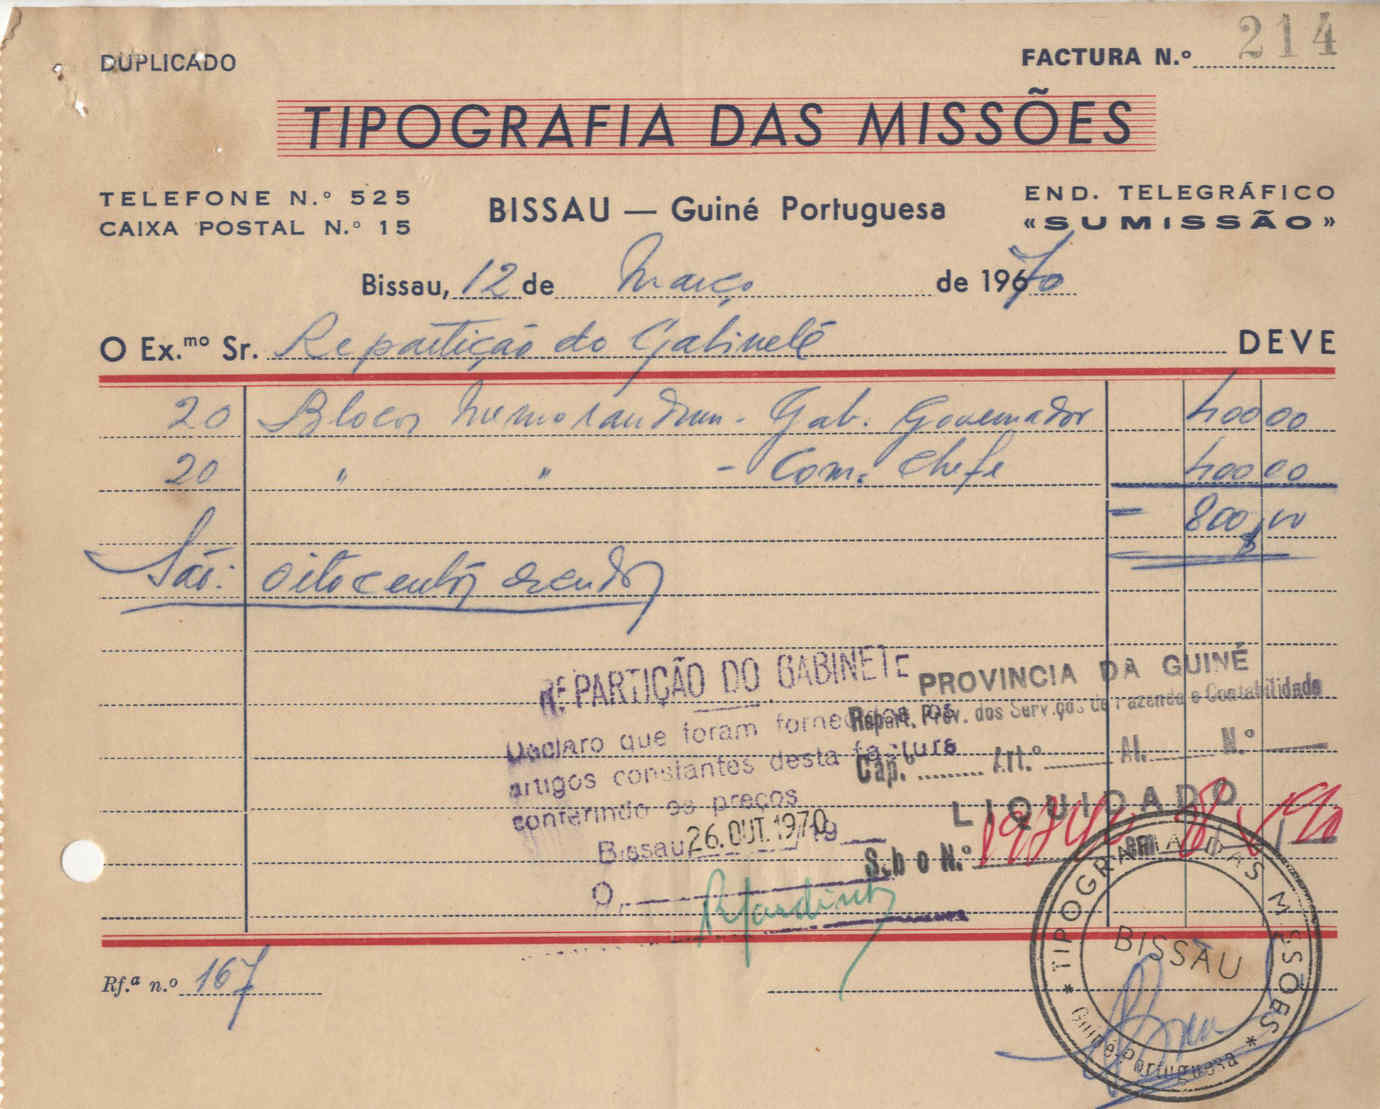 DUPLICADO
FACTURA N.º 214
TIPOGRAFIA DAS MISSÕES
TELEFONE N.º 525
CAIXA POSTAL N.º 15
BISSAU — Guiné Portuguesa
END. TELEGRÁFICO
«SUMISSÃO»
Bissau, 12 de Março de 19670
O Ex.mo Sr. Repartição do Gabinete DEVE
20 Blocos Memorandum - Gab. Governador 400 00
20 " " - Com. Chefe 400 00
— 800,00
São: oitocentos escudos
REPARTIÇÃO DO GABINETE
Declaro que foram fornecidos os
artigos constantes desta factura
conferindo os preços
Bissau, 26. OUT. 1970 19
O,
PROVINCIA DA GUINÉ
Repart. Prov. dos Serviços de Fazenda e Contabilidade
Cap.º Art.º Al. N.º
LIQUIDADO
Sob o N.º
TIPOGRAFIA DAS MISSÕES
BISSAU
* Guiné Portuguesa *
Rf.ª n.º 167